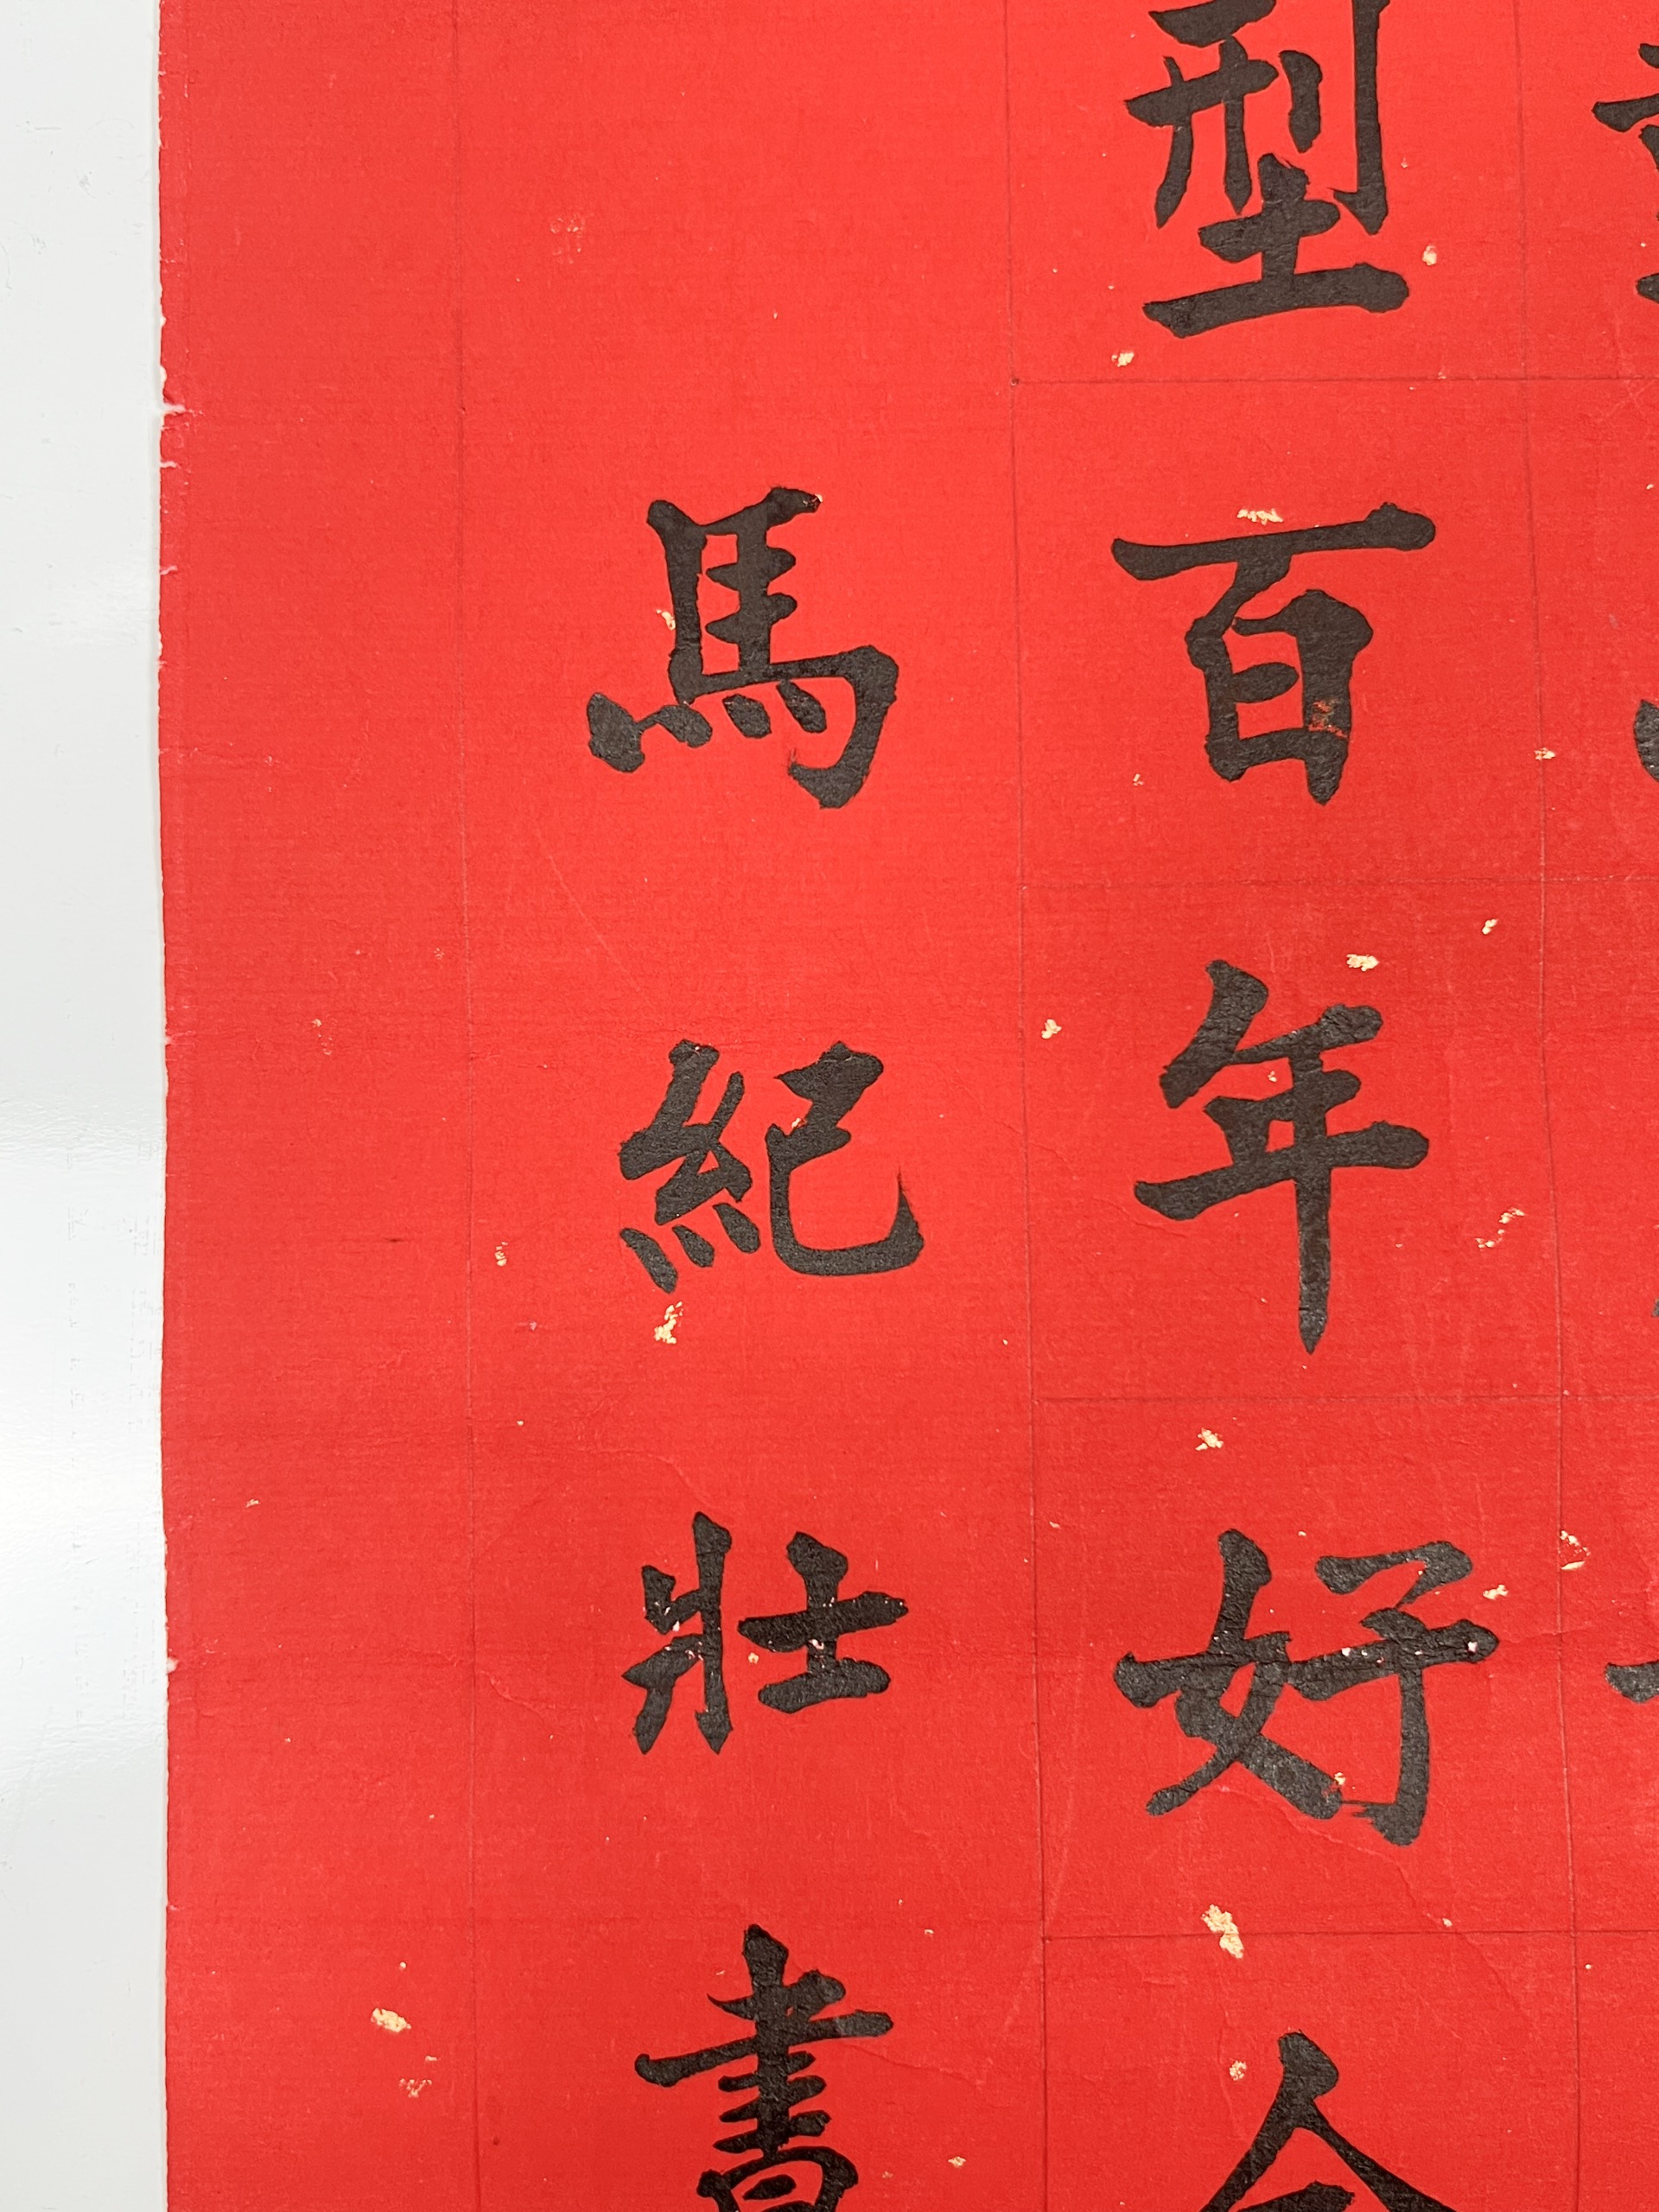 型百年好合
馬紀壯書